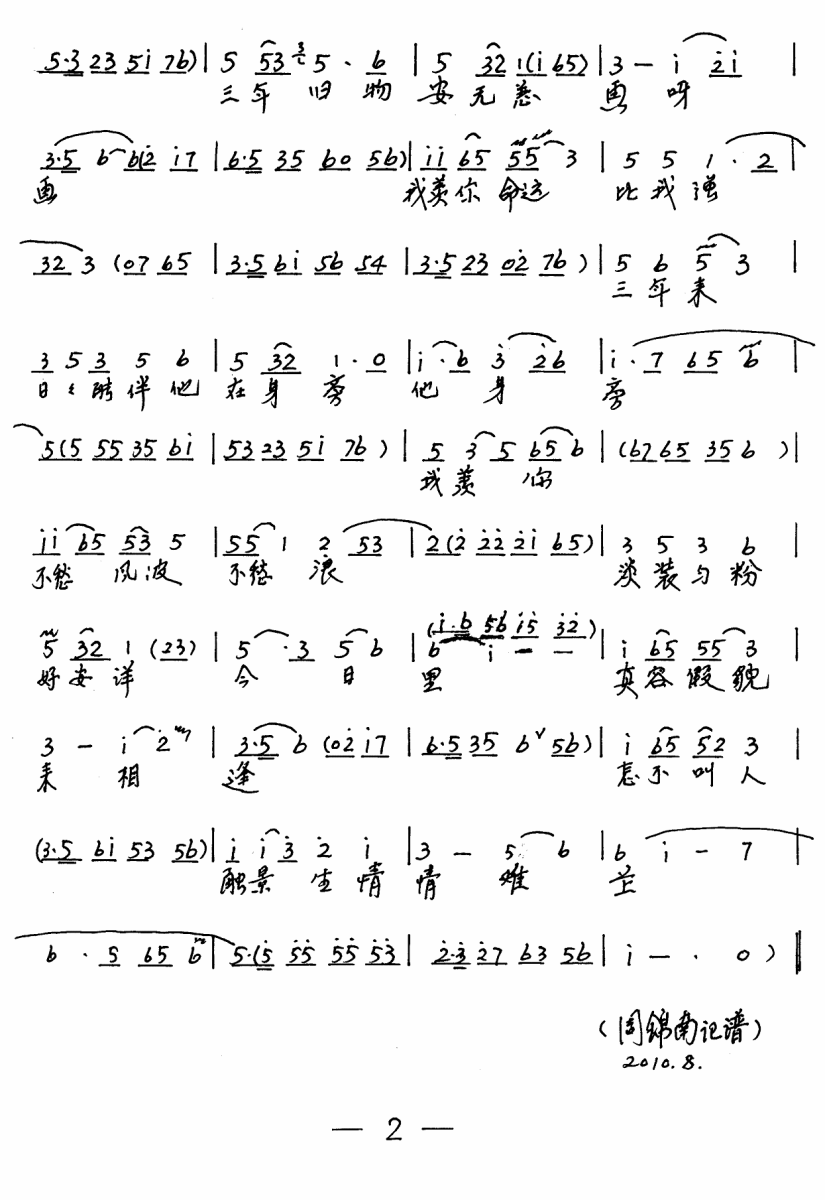 5·3 23 5i 76) | 5 53 3 5 · 6 | 5 32 1(i 65) | 3 — i 2i |
三年 旧 物 安 无 恙 画 呀
3·5 6 6(2 i7 | 6·5 35 60 56) | ii 65 55 3 | 5 5 1 · 2 |
画 我羡你 命运 比 我 强
32 3 (07 65 | 3·5 6i 56 54 | 3·5 23 02 76) | 5 6 5 3 |
三 年 来
3 5 3 5 6 | 5 32 1·0 | i·6 3 26 | i·7 65 6 |
日々陪伴他 在身 旁 他 身 旁
5(5 55 35 6i | 53 23 5i 76) | 5 3 5 65 6 | (67 65 35 6) |
我 羡 你
ii 65 53 5 | 55 1 2 53 | 2(2 22 2i 65) | 3 5 3 6 |
不愁 风波 不愁 浪 淡 装 与 粉
(i·6 56 i5 32)
5 32 1 (23) | 5 · 3 5 6 | 6 i — — | i 65 55 3 |
好 安 详 今 日 里 真 容 假 貌
3 — i 2 | 3·5 6 (02 i7 | 6·5 35 6 ∨ 56) | i 65 52 3 |
来 相 逢 怎 不 叫 人
(3·5 6i 53 56) | i i 3 2 i | 3 — 5 6 | 6 i — 7 |
触景 生 情 情 难
6 · 5 65 6 | 5·(5 55 55 53 | 2·3 27 63 56 | i — · 0) ‖
(周锦南记谱)
2010.8.
— 2 —